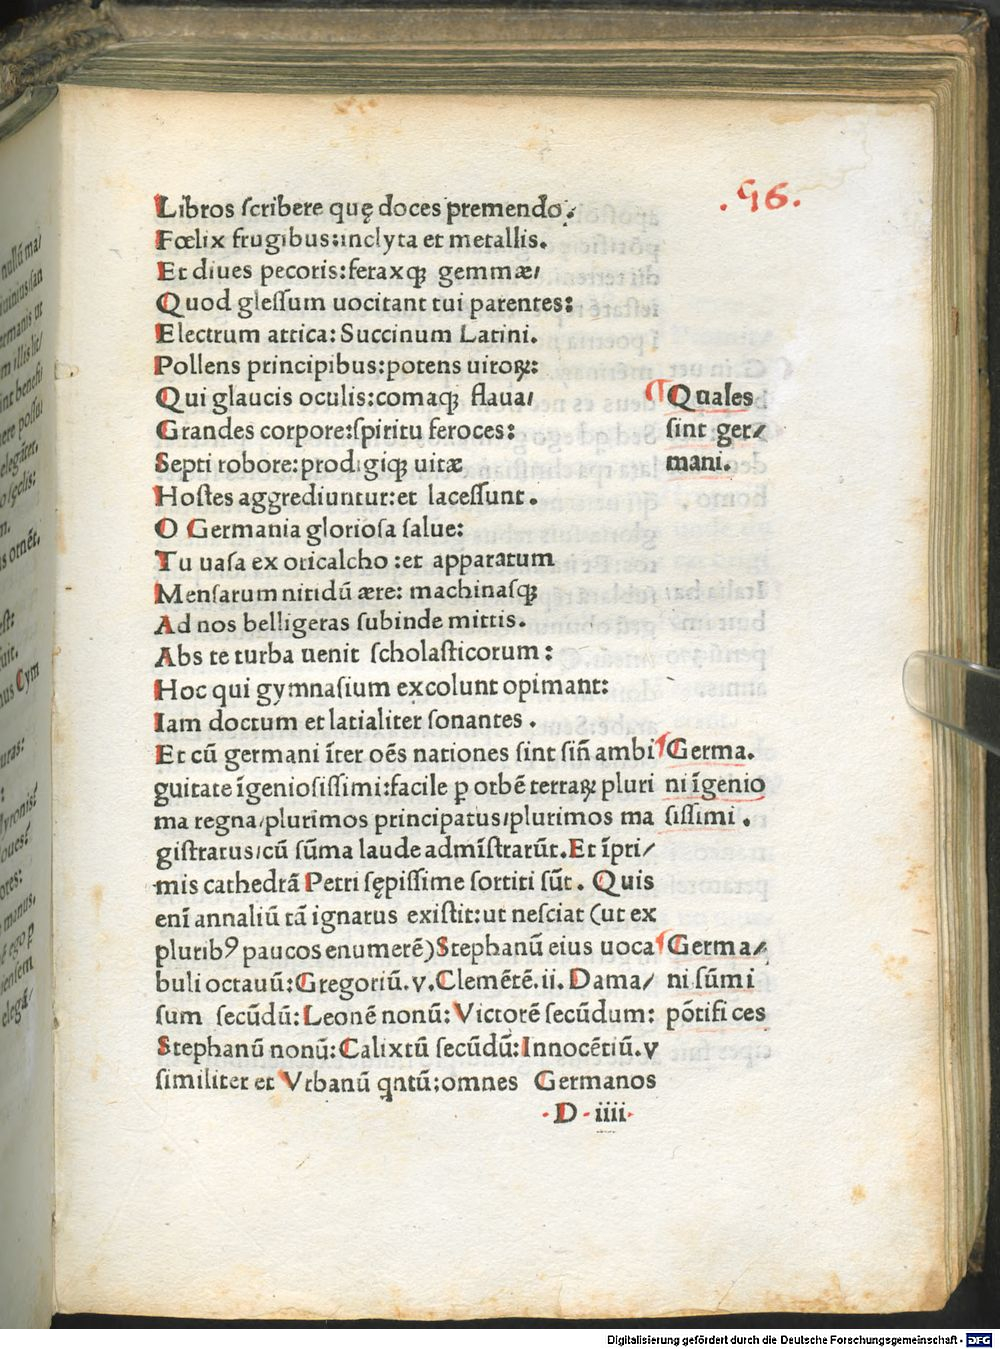 .96.
Libros ſcribere quę doces premendo.
Fœlix frugibus:inclyta et metallis.
Et diues pecoris:feraxqꝫ gemmæ/
Quod gleſſum uocitant tui parentes:
Electrum attica: Succinum Latini.
Pollens principibus:potens uiroꝝ:
Qui glaucis oculis:comaqꝫ flaua/
Grandes corpore:ſpiritu feroces:
Septi robore:prodigiqꝫ uitæ
Hoſtes aggrediuntur:et laceſſunt.
O Germania glorioſa ſalue:
Tu uaſa ex oricalcho :et apparatum
Menſarum nitidū ære: machinaſqꝫ
Ad nos belligeras ſubinde mittis.
Abs te turba uenit ſcholaſticorum :
Hoc qui gymnaſium excolunt opimant:
Iam doctum et latialiter ſonantes .
Et cū germani īter oēs nationes ſint ſiñ ambi
guitate īgenioſiſſimi:facile ꝑ orbē terraꝝ pluri
ma regna/plurimos principatus/plurimos ma
giſtratus/cū ſūma laude admīſtrarūt.Et īpri/
mis cathedrā Petri ſępiſſime ſortiti ſūt. Quis
enī annaliū tā ignatus exiſtit:ut neſciat (ut ex
pluribꝰ paucos enumerē)Stephanū eius uoca
buli octauū:Gregoriū.v.Clemētē.ii. Dama/
ſum ſecūdū:Leonē nonū: Victorē ſecūdum:
Stephanū nonū:Calixtū ſecūdū:Innocētiū.v
ſimiliter et Vrbanū qntū;omnes Germanos
.D.iiii.
Quales
ſint ger/
mani.
Germa.
ni īgenio
ſiſſimi .
Germa/
ni ſūmi
pōtifices
nullū ma/
Digitalisierung gefördert durch die Deutsche Forschungsgemeinschaft - DFG